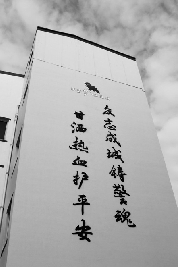 众志成城铸警魂
甘洒热血护平安